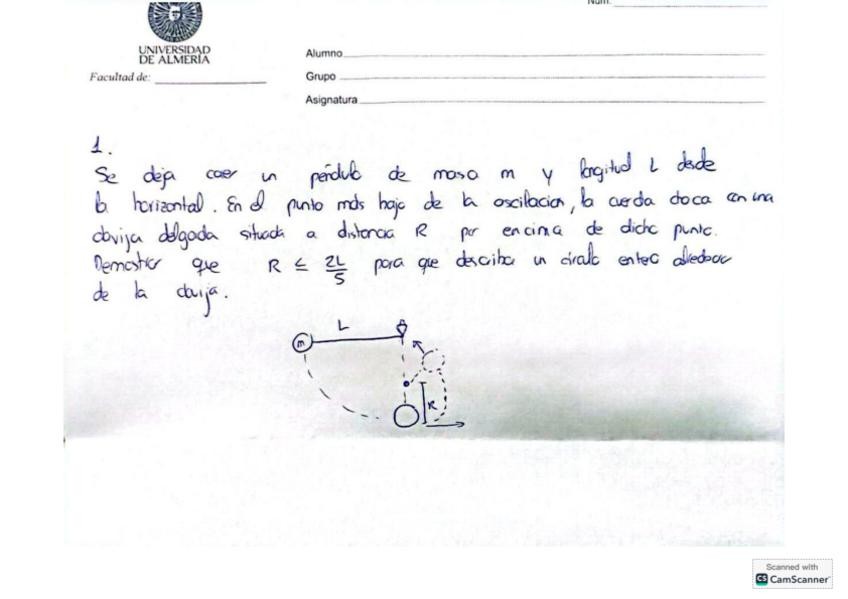 Núm.
UNIVERSIDAD
DE ALMERÍA
Facultad de:
Alumno
Grupo
Asignatura
1.
Se deja caer un péndulo de masa m y longitud L desde
la horizontal. En el punto más bajo de la oscilación, la cuerda choca con una
clavija delgada situada a distancia R por encima de dicho punto.
Demostrar que R ≤ 2L/5 para que describa un círculo entero alrededor
de la clavija.
L
m
R
Scanned with
CS CamScanner